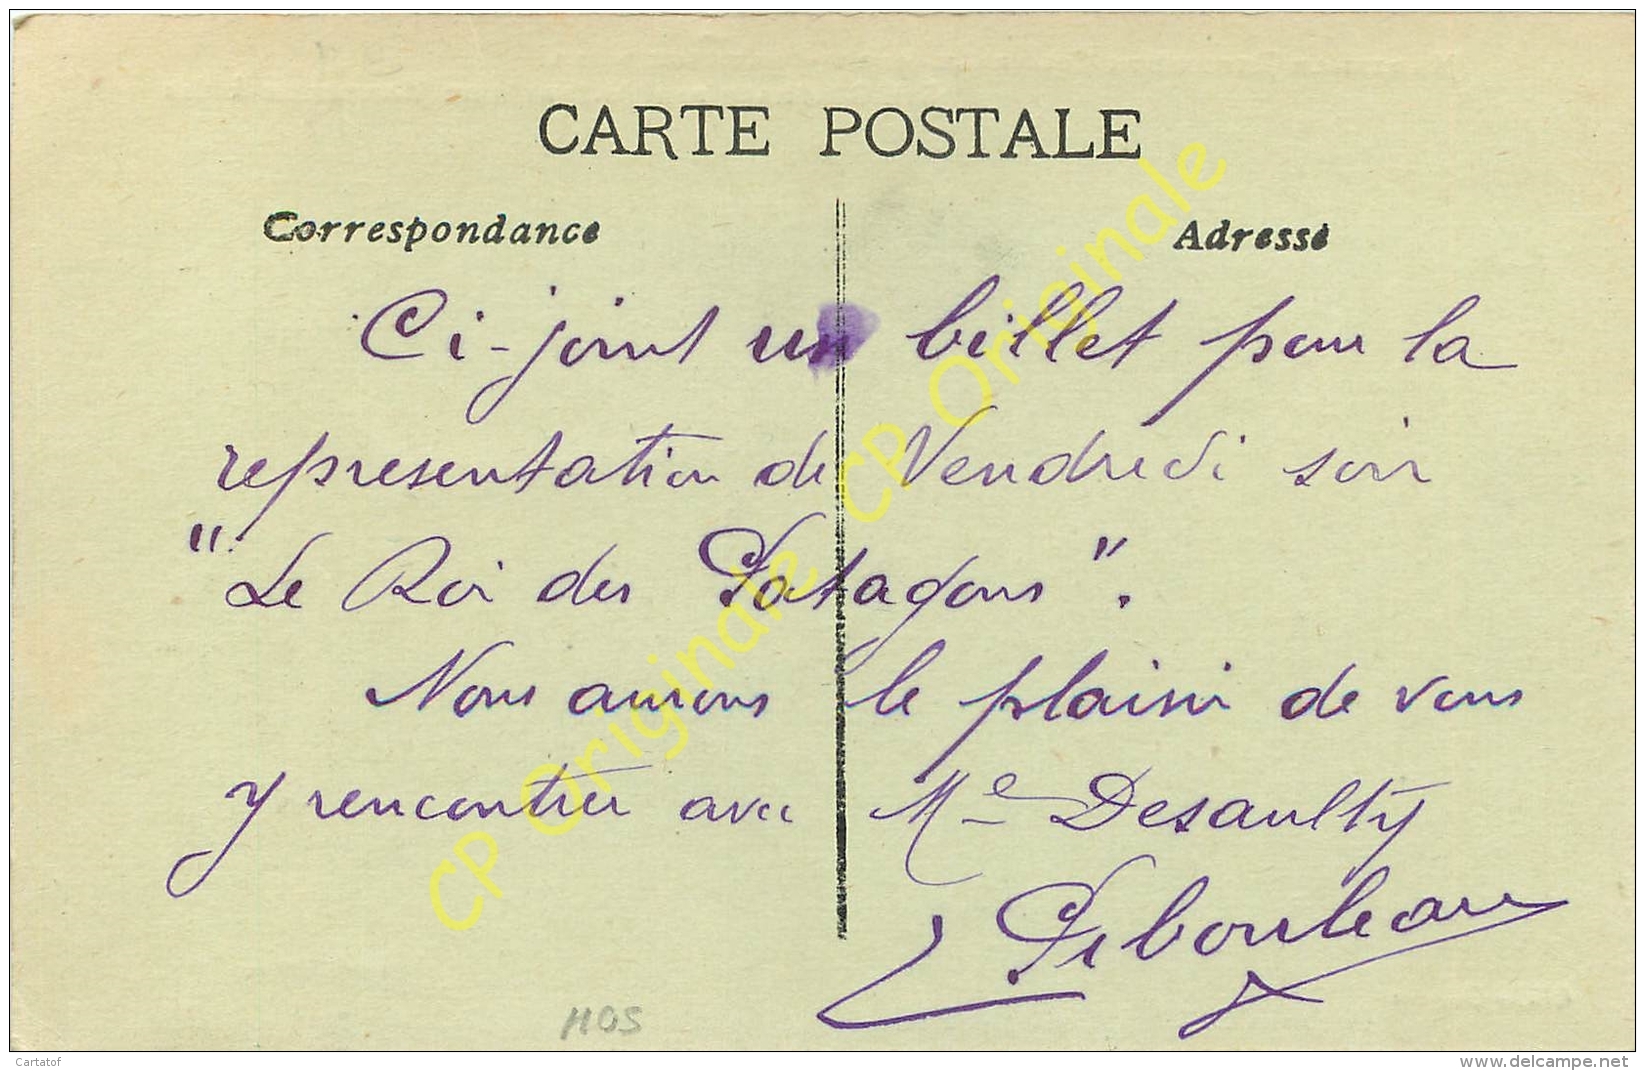 CARTE POSTALE
Correspondance
Adresse
Ci-joint un billet pour la
representation de Vendredi soir
"Le Roi des Patagons".
Nous aurons le plaisir de vous
y rencontrer avec Me Desaulty
CP Originale CP Originale CP Originale
Cartatof
www.delcampe.net